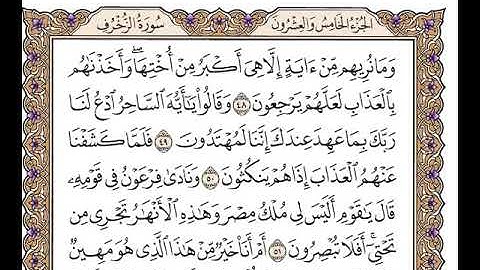 سُورَةُ الزُّخْرُفِ الجُزْءُ الخَامِسُ وَالعِشْرُونَ
وَمَا نُرِيهِم مِّنْ ءَايَةٍ إِلَّا هِيَ أَكْبَرُ مِنْ أُخْتِهَا ۖ وَأَخَذْنَٰهُم
بِالْعَذَابِ لَعَلَّهُمْ يَرْجِعُونَ ٤٨ وَقَالُوا۟ يَٰٓأَيُّهَ السَّاحِرُ ادْعُ لَنَا
رَبَّكَ بِمَا عَهِدَ عِندَكَ إِنَّنَا لَمُهْتَدُونَ ٤٩ فَلَمَّا كَشَفْنَا
عَنْهُمُ الْعَذَابَ إِذَا هُمْ يَنكُثُونَ ٥٠ وَنَادَىٰ فِرْعَوْنُ فِي قَوْمِهِۦ
قَالَ يَٰقَوْمِ أَلَيْسَ لِي مُلْكُ مِصْرَ وَهَٰذِهِ الْأَنْهَٰرُ تَجْرِي مِن
تَحْتِيٓ ۖ أَفَلَا تُبْصِرُونَ ٥١ أَمْ أَنَا۠ خَيْرٌ مِّنْ هَٰذَا الَّذِي هُوَ مَهِينٌ